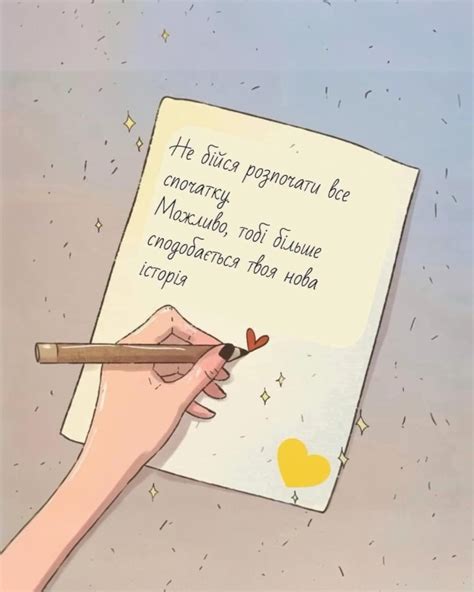 Не бійся розпочати все
спочатку.
Можливо, тобі більше
сподобається твоя нова
історія